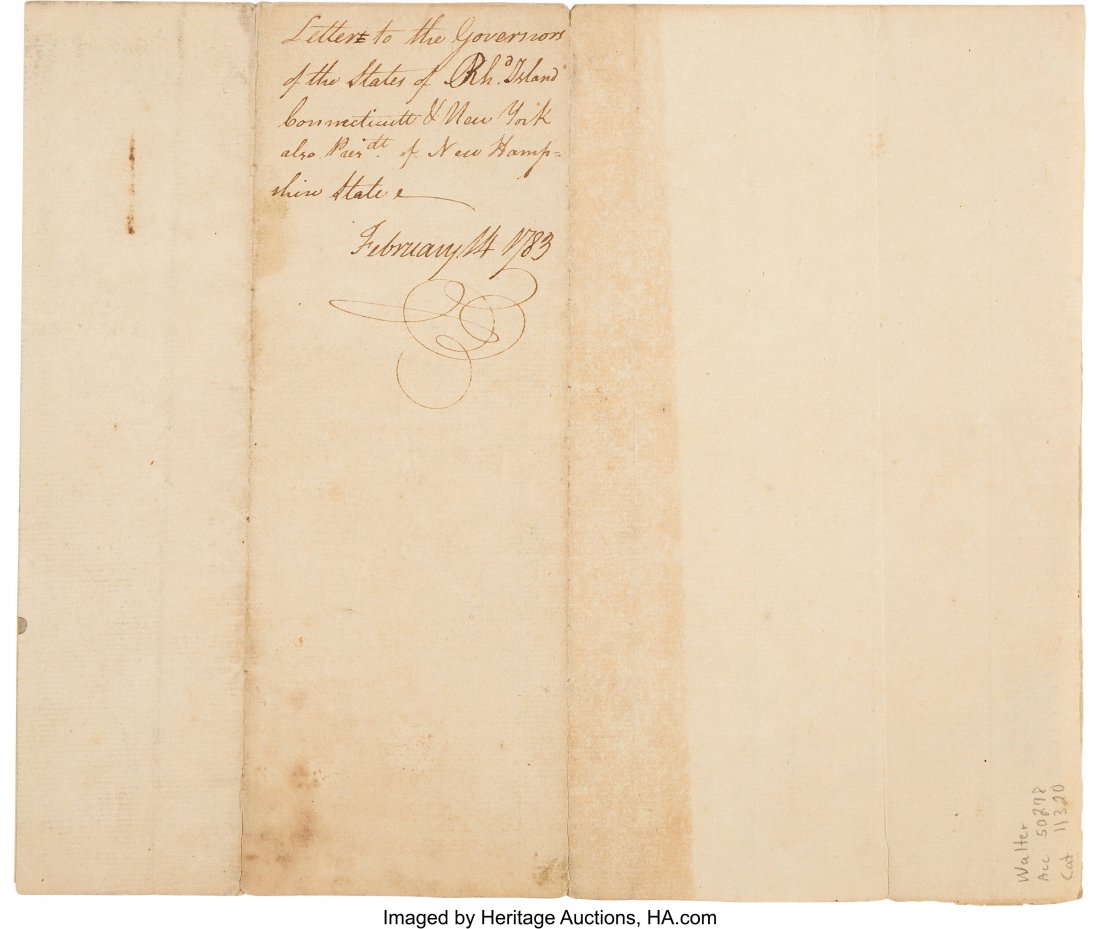 Letter to the Governors
of the States of Rhd. Island
Connecticutt & New York
also Presdt. of New Hamp=
shire State
February 14 1783
Walter
Acc 50278
Cat 11320
Imaged by Heritage Auctions, HA.com